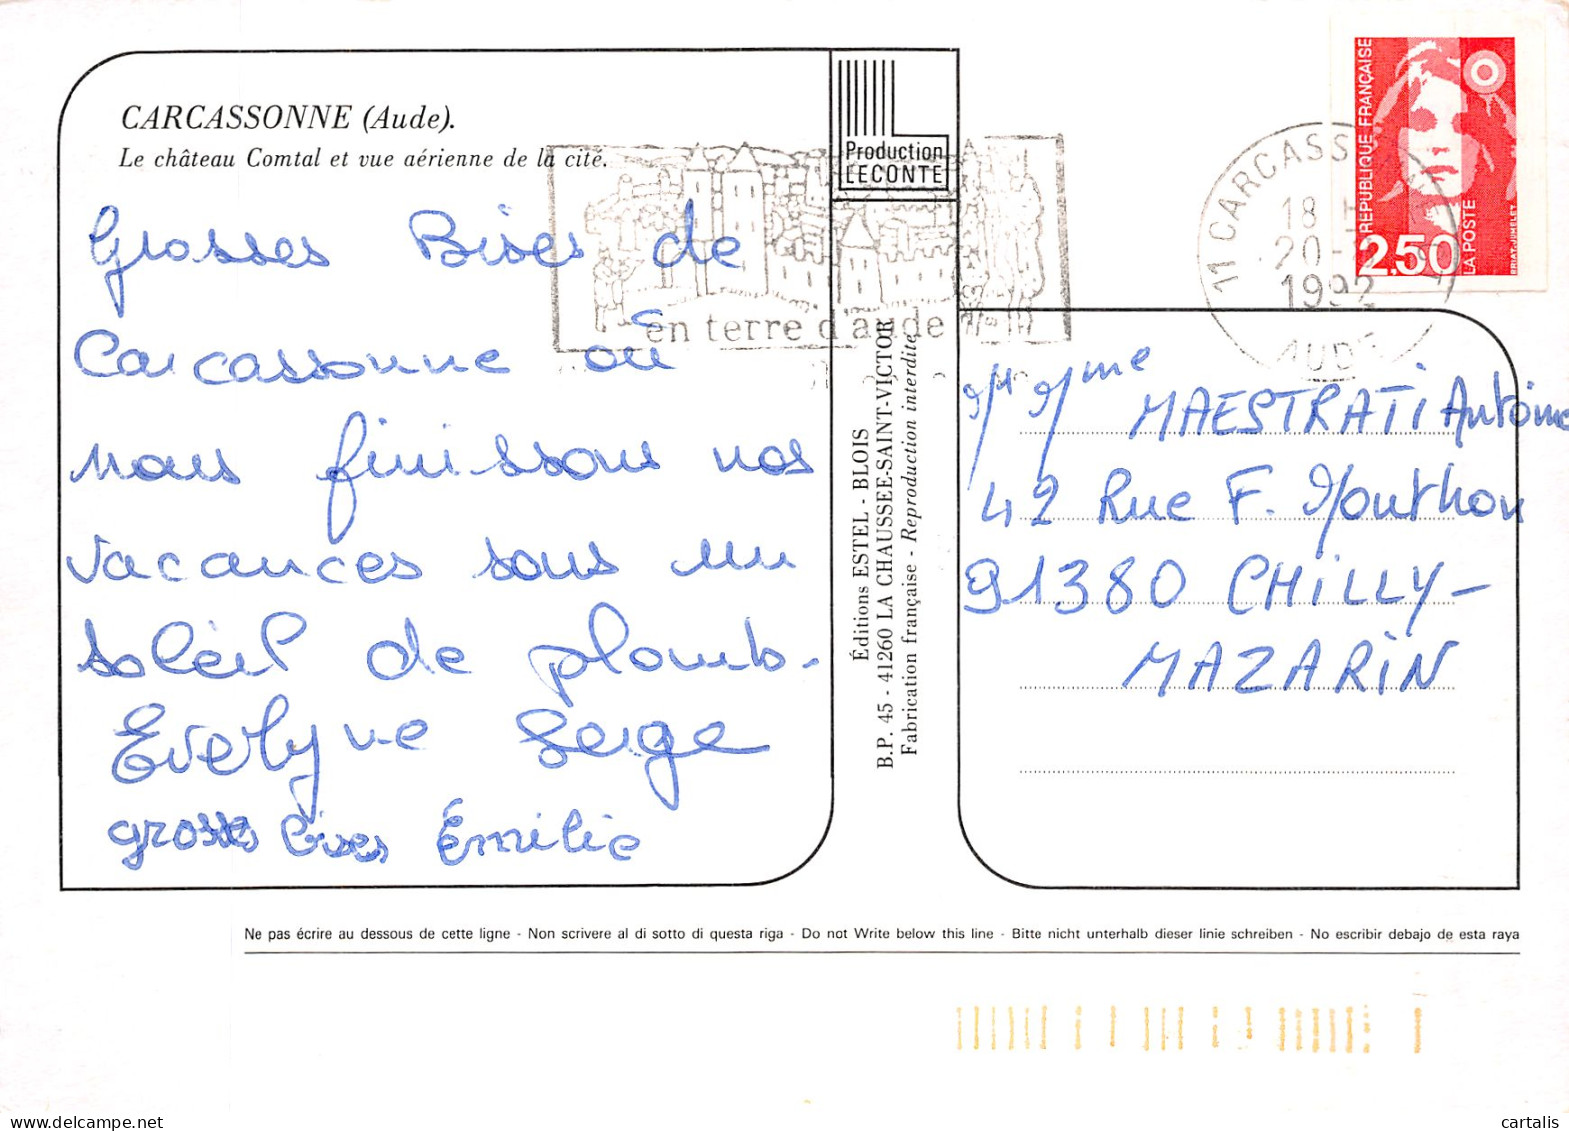 CARCASSONNE (Aude).
Le château Comtal et vue aérienne de la cité.
Grosses Bises de
Carcassonne où
nous finissons nos
vacances sous un
soleil de plomb.
Evelyne Serge
grosses bises Émilie
Production
LECONTE
en terre d'aude
Éditions ESTEL - BLOIS
B.P. 45 - 41260 LA CHAUSSEE-SAINT-VICTOR
Fabrication française - Reproduction interdite
11 CARCASS
18 H
20-
1992
AUDE
REPUBLIQUE FRANÇAISE
2,50
LA POSTE
BRIAT-JUMELET
Mr Mme MAESTRATI Antoine
42 Rue F. Mouthon
91380 CHILLY-
MAZARIN
Ne pas écrire au dessous de cette ligne - Non scrivere al di sotto di questa riga - Do not Write below this line - Bitte nicht unterhalb dieser linie schreiben - No escribir debajo de esta raya
cartalis